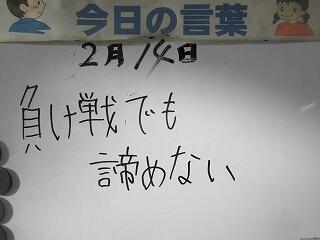 今日の言葉
2月14日
負け戦でも
諦めない